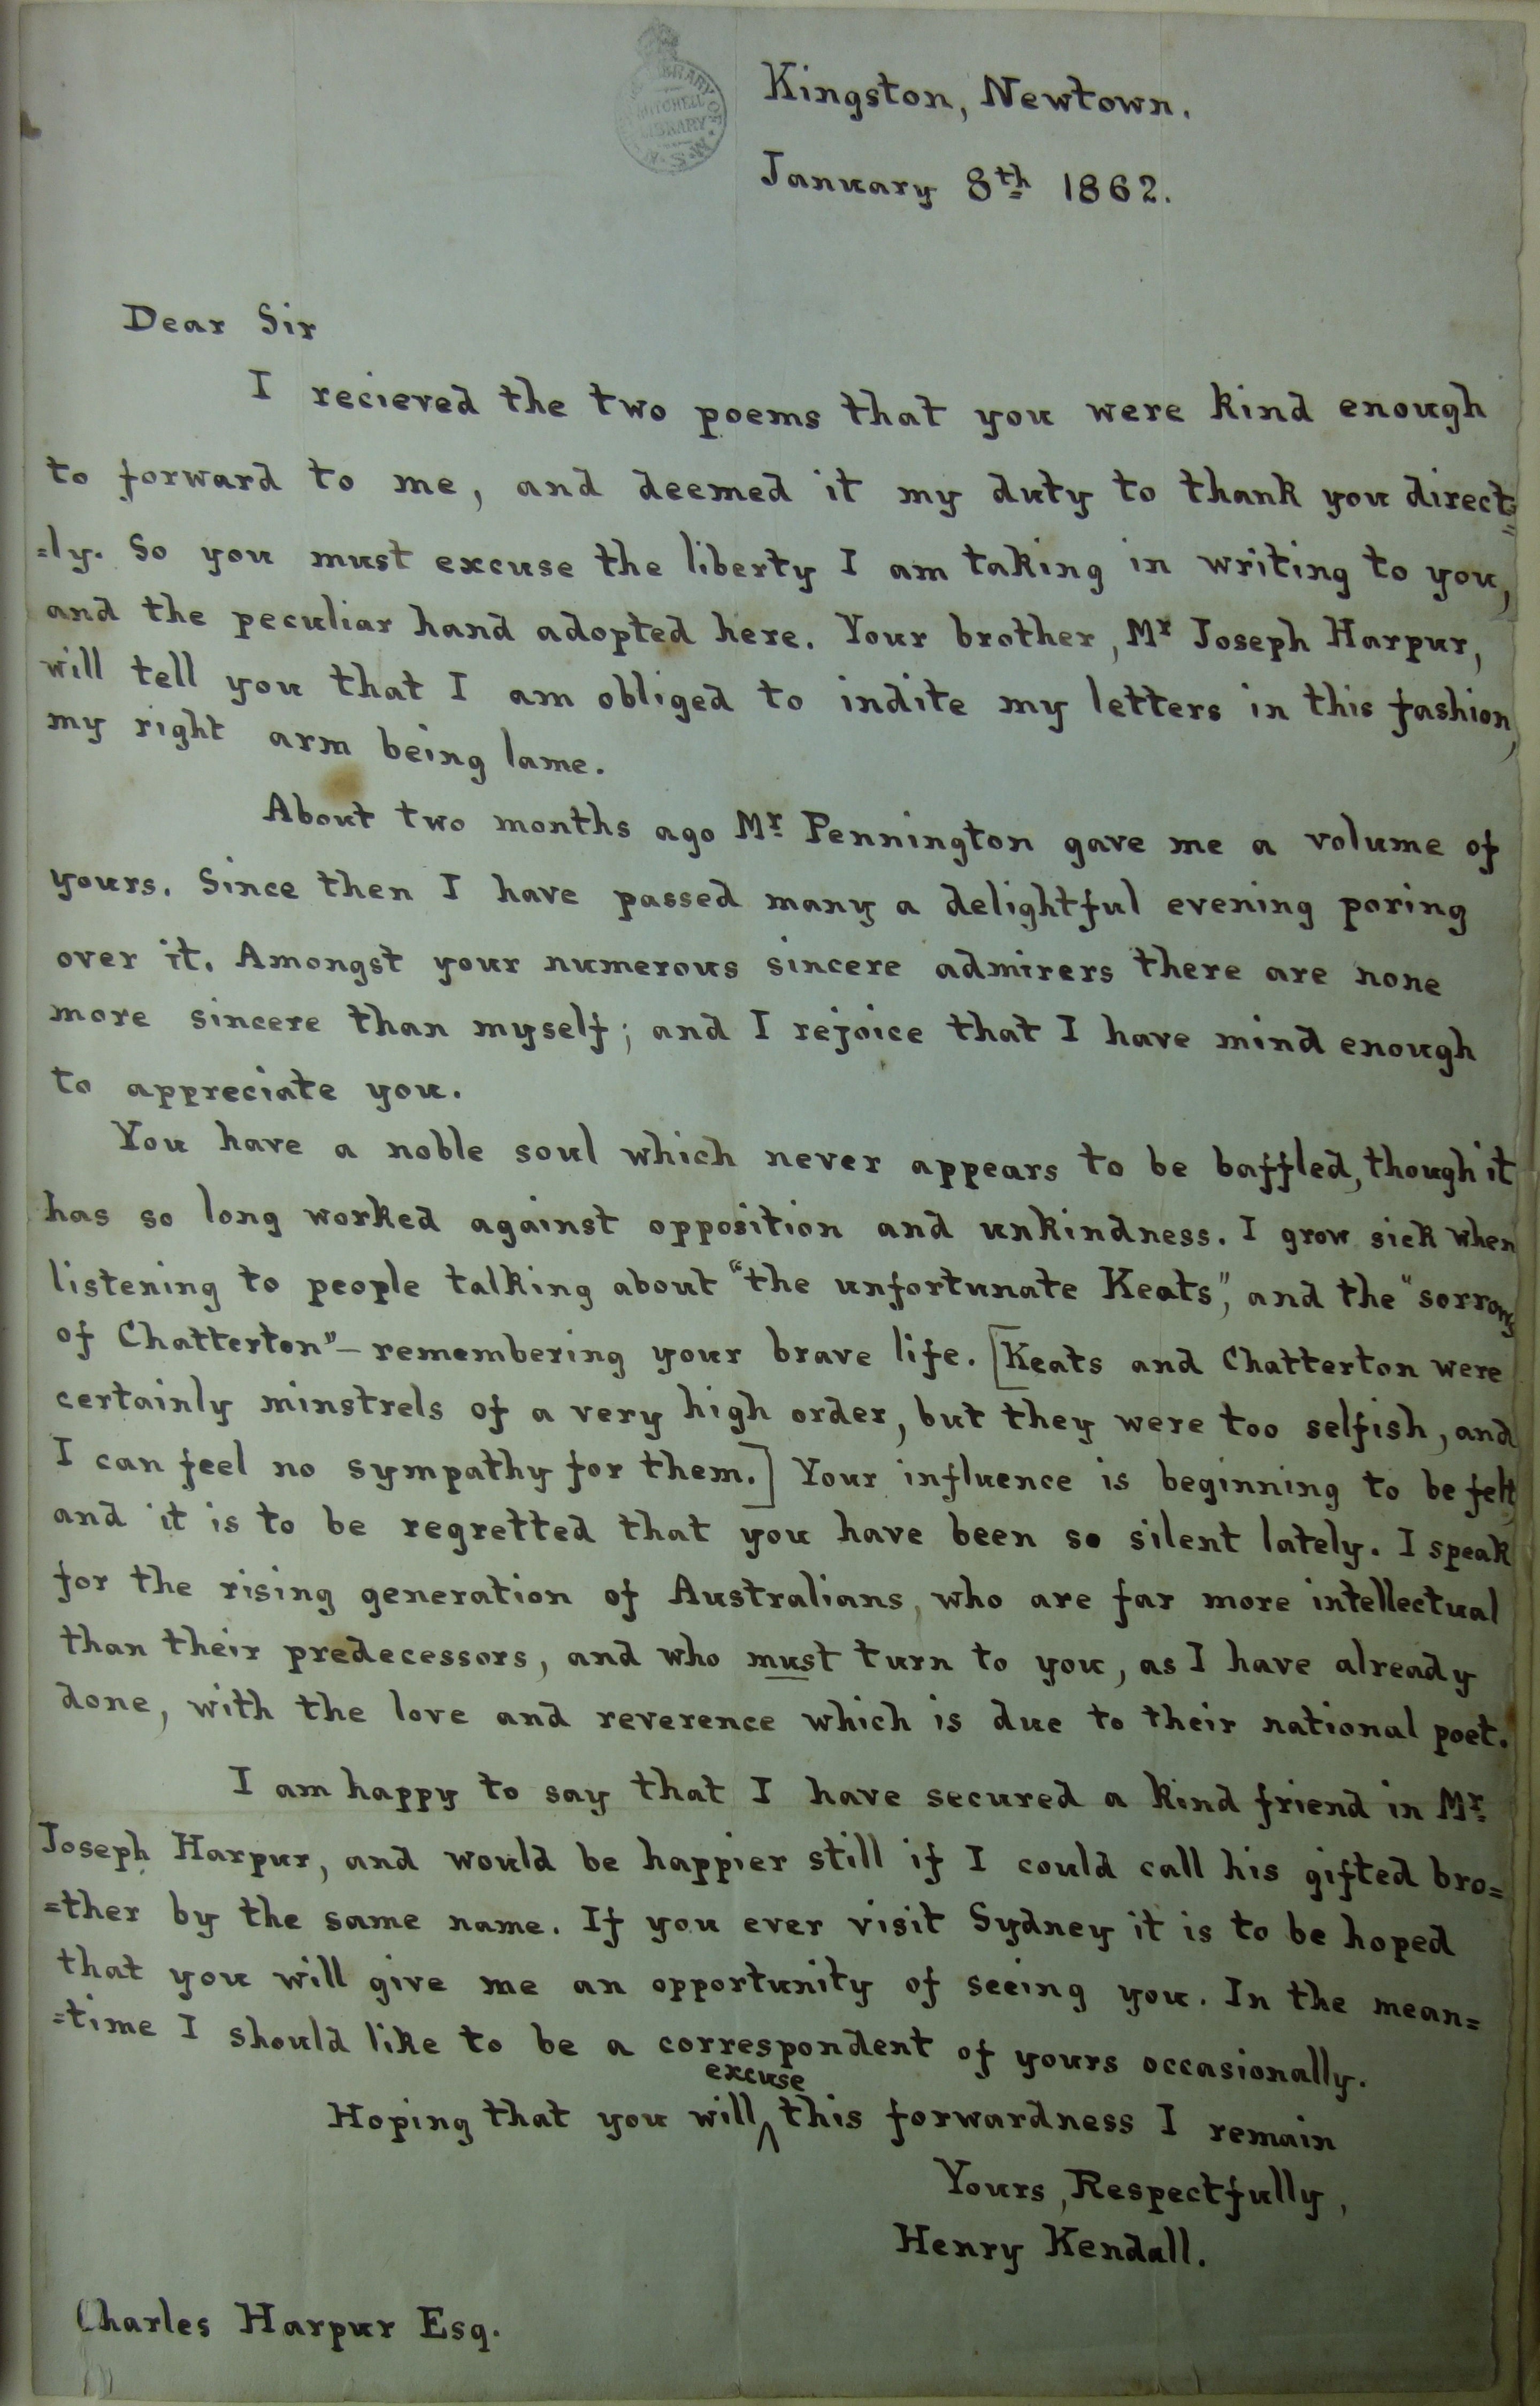 PUBLIC LIBRARY OF N.S.W.
MITCHELL
LIBRARY
Kingston, Newtown.
January 8th 1862.
Dear Sir
I recieved the two poems that you were kind enough
to forward to me, and deemed it my duty to thank you direct=
=ly. So you must excuse the liberty I am taking in writing to you,
and the peculiar hand adopted here. Your brother, Mr Joseph Harpur,
will tell you that I am obliged to indite my letters in this fashion,
my right arm being lame.
About two months ago Mr Pennington gave me a volume of
yours. Since then I have passed many a delightful evening poring
over it. Amongst your numerous sincere admirers there are none
more sincere than myself; and I rejoice that I have mind enough
to appreciate you.
You have a noble soul which never appears to be baffled, though it
has so long worked against opposition and unkindness. I grow sick when
listening to people talking about "the unfortunate Keats", and the "sorrows
of Chatterton" – remembering your brave life. [Keats and Chatterton were
certainly minstrels of a very high order, but they were too selfish, and
I can feel no sympathy for them.] Your influence is beginning to be felt,
and it is to be regretted that you have been so silent lately. I speak
for the rising generation of Australians, who are far more intellectual
than their predecessors, and who must turn to you, as I have already
done, with the love and reverence which is due to their national poet.
I am happy to say that I have secured a kind friend in Mr
Joseph Harpur, and would be happier still if I could call his gifted bro=
=ther by the same name. If you ever visit Sydney it is to be hoped
that you will give me an opportunity of seeing you. In the mean=
=time I should like to be a correspondent of yours occasionally.
excuse
Hoping that you will ^ this forwardness I remain
Yours, Respectfully,
Henry Kendall.
Charles Harpur Esq.